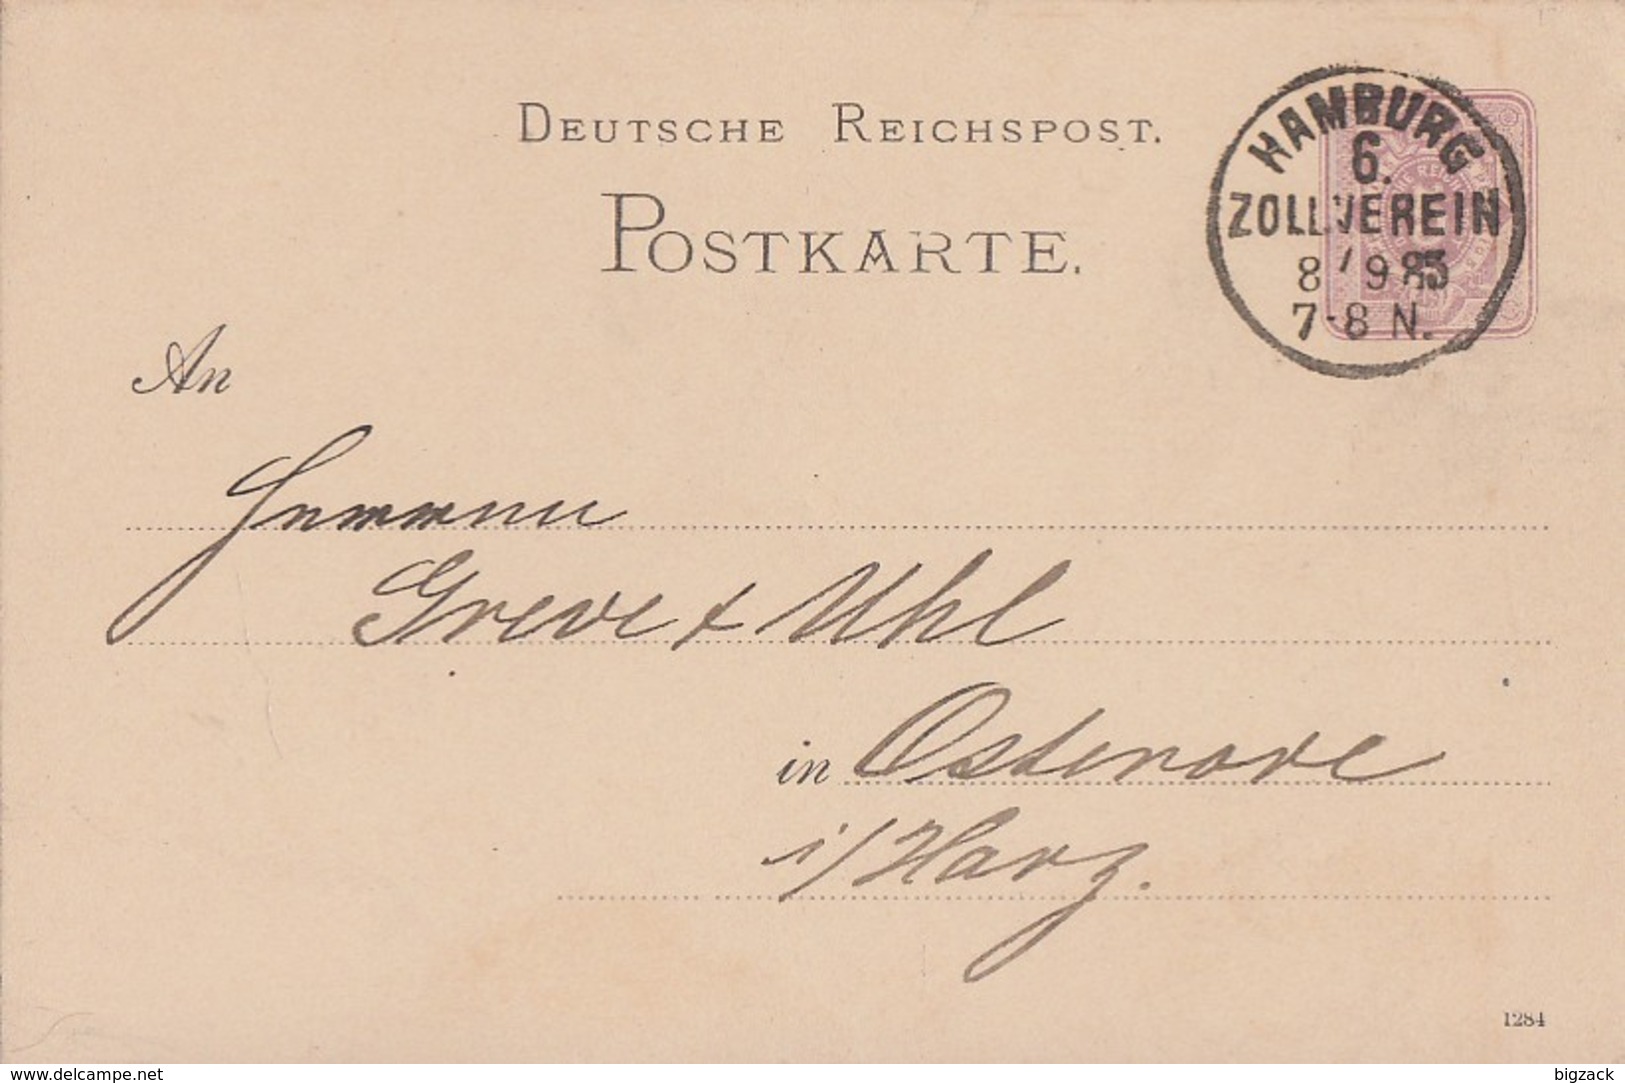 DEUTSCHE REICHSPOST.
POSTKARTE.
HAMBURG
6.
ZOLLVEREIN
8/9 85
7-8 N.
An
Greve & Uhl
in Osterode
i/Harz.
1284
www.delcampe.net
bigzack